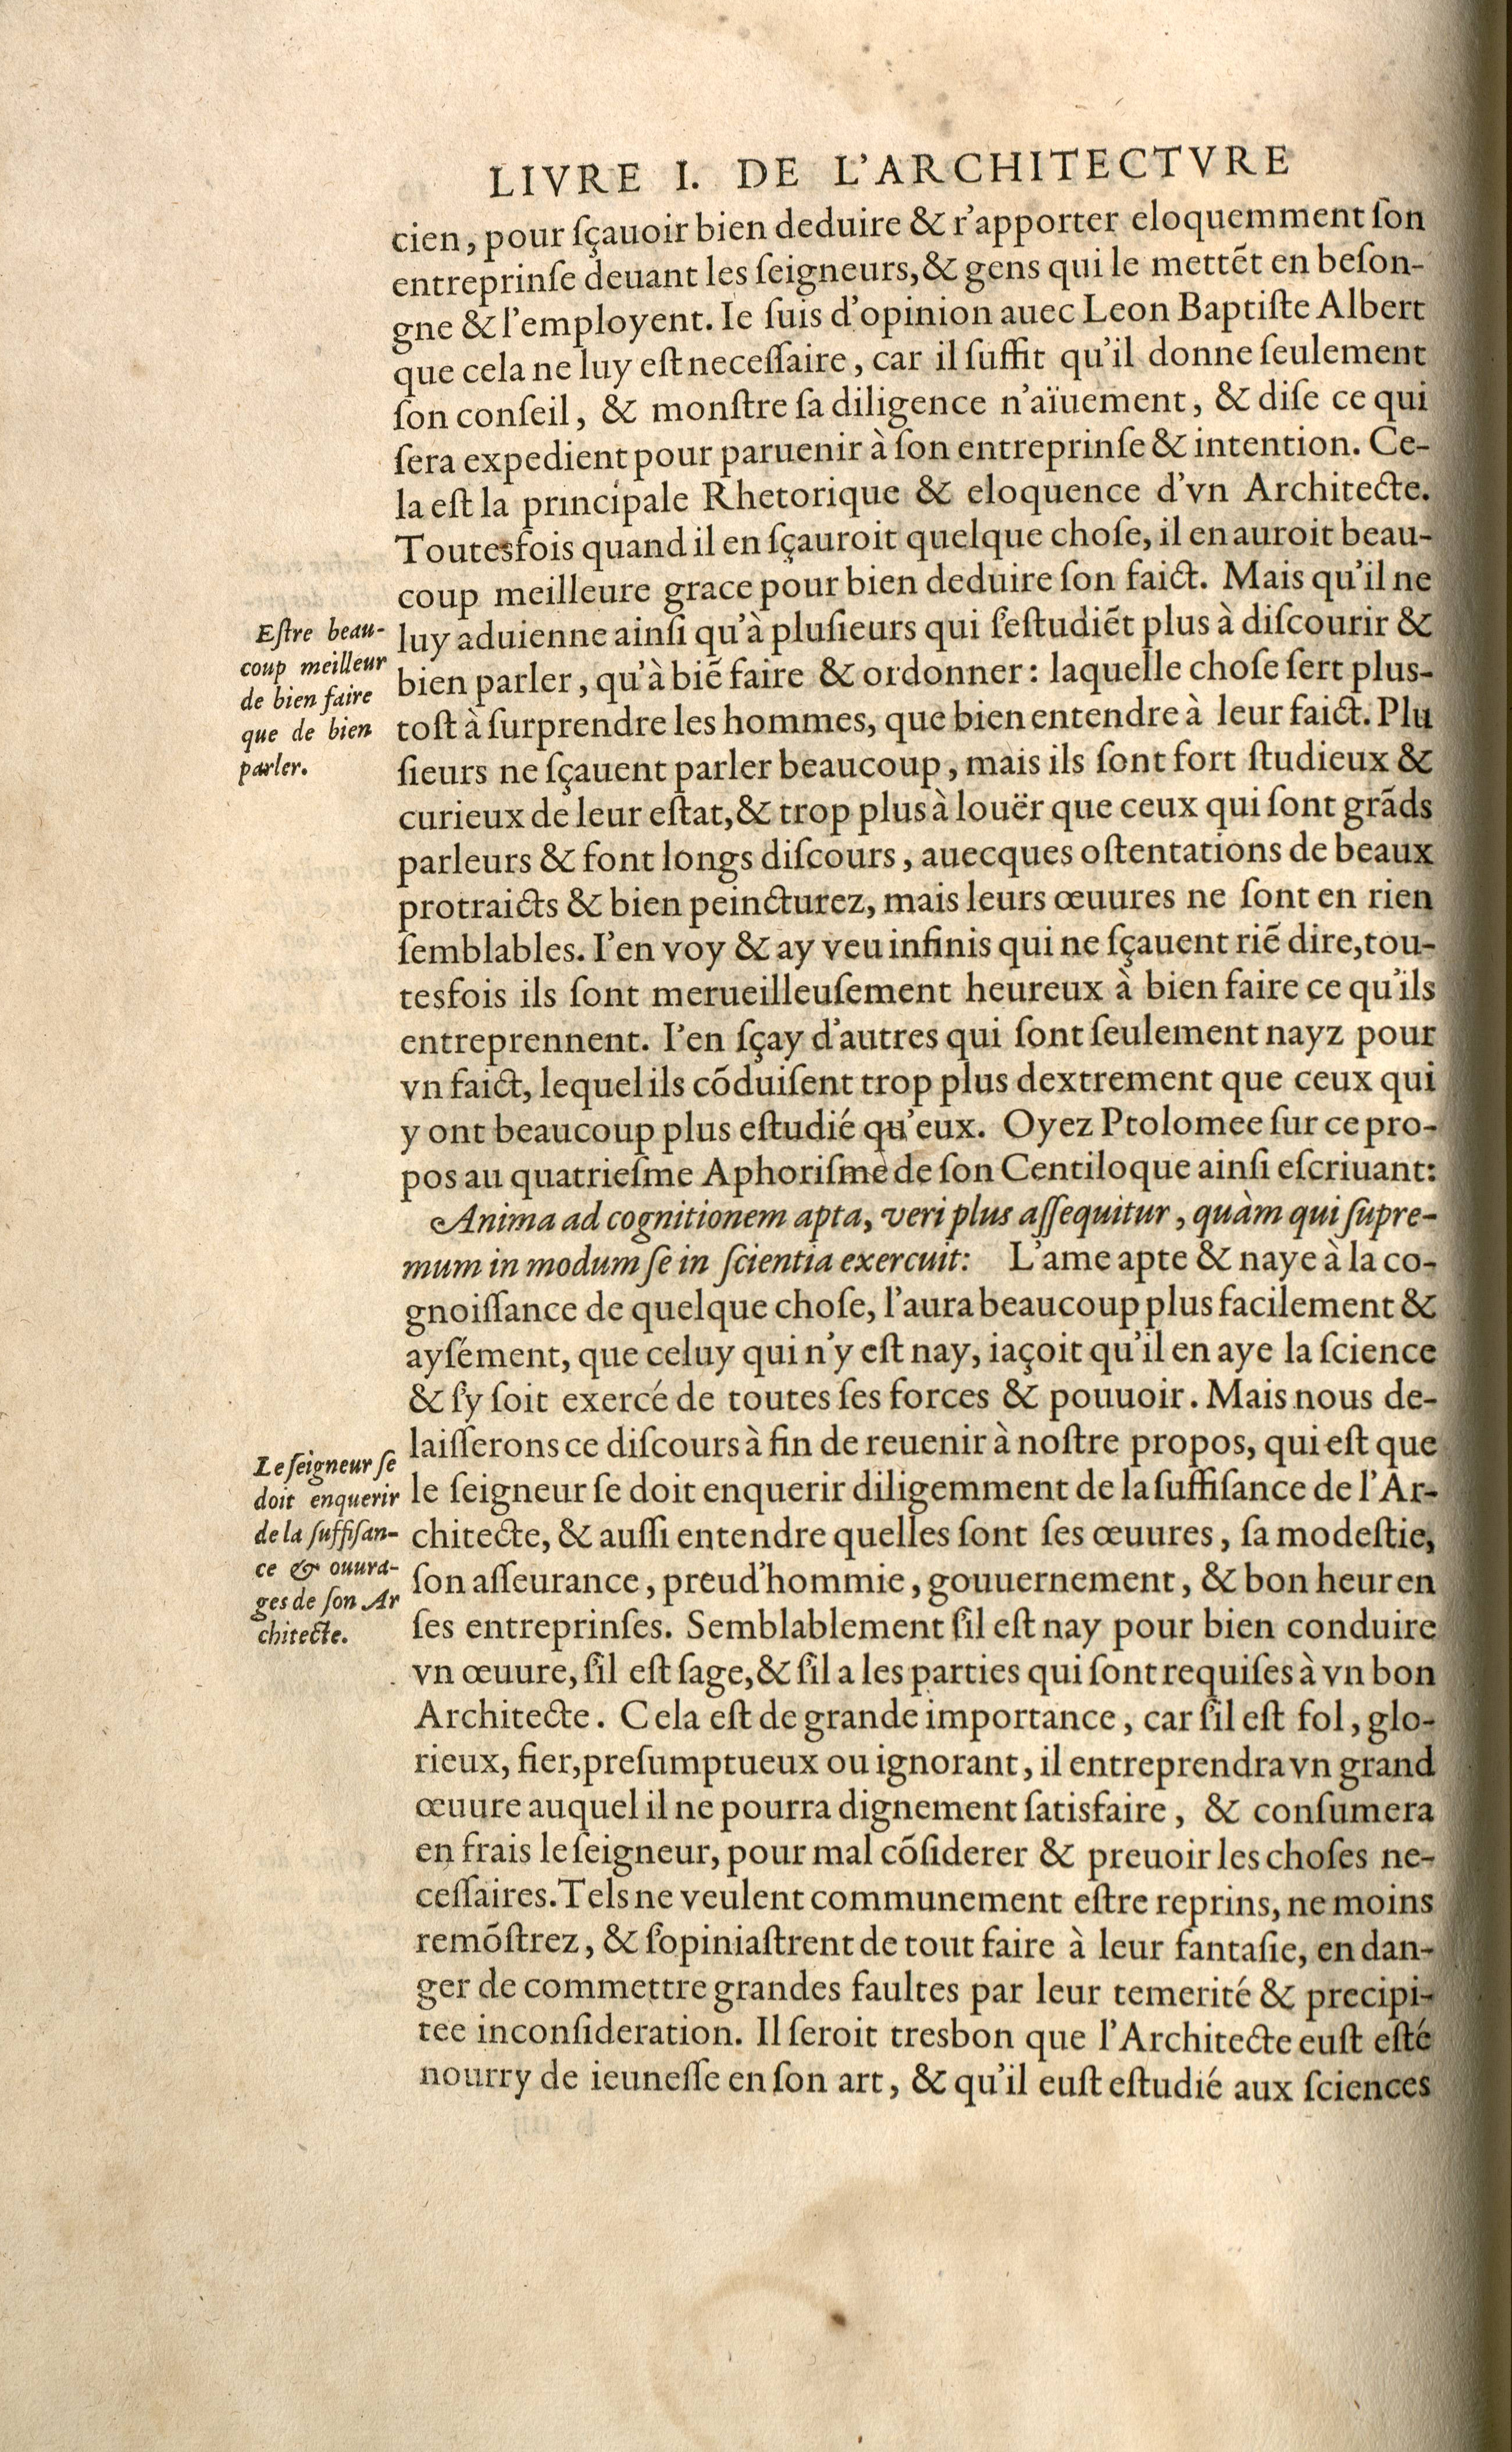 LIVRE I. DE L'ARCHITECTVRE
cien, pour ſçauoir bien deduire & r'apporter eloquemment ſon
entreprinſe deuant les ſeigneurs, & gens qui le mettēt en beſon-
gne & l'employent. Ie ſuis d'opinion auec Leon Baptiſte Albert
que cela ne luy eſt neceſſaire, car il ſuffit qu'il donne ſeulement
ſon conſeil, & monſtre ſa diligence n'aïuement, & diſe ce qui
ſera expedient pour paruenir à ſon entreprinſe & intention. Ce-
la eſt la principale Rhetorique & eloquence d'vn Architecte.
Toutesfois quand il en ſçauroit quelque choſe, il en auroit beau-
coup meilleure grace pour bien deduire ſon faict. Mais qu'il ne
luy aduienne ainſi qu'à pluſieurs qui ſ'eſtudiēt plus à diſcourir &
bien parler, qu'à biē faire & ordonner: laquelle choſe ſert plus-
toſt à ſurprendre les hommes, que bien entendre à leur faict. Plu
ſieurs ne ſçauent parler beaucoup, mais ils ſont fort ſtudieux &
curieux de leur eſtat, & trop plus à louër que ceux qui ſont grāds
parleurs & font longs diſcours, auecques oſtentations de beaux
protraicts & bien peincturez, mais leurs œuures ne ſont en rien
ſemblables. I'en voy & ay veu infinis qui ne ſçauent riē dire, tou-
tesfois ils ſont merueilleuſement heureux à bien faire ce qu'ils
entreprennent. I'en ſçay d'autres qui ſont ſeulement nayz pour
vn faict, lequel ils cōduiſent trop plus dextrement que ceux qui
y ont beaucoup plus eſtudié qu'eux. Oyez Ptolomee ſur ce pro-
pos au quatrieſme Aphoriſme de ſon Centiloque ainſi eſcriuant:
Anima ad cognitionem apta, veri plus aſſequitur, quàm qui ſupre-
mum in modum ſe in ſcientia exercuit: L'ame apte & naye à la co-
gnoiſſance de quelque choſe, l'aura beaucoup plus facilement &
ayſément, que celuy qui n'y eſt nay, iaçoit qu'il en aye la ſcience
& ſ'y ſoit exercé de toutes ſes forces & pouuoir. Mais nous de-
laiſſerons ce diſcours à fin de reuenir à noſtre propos, qui eſt que
le ſeigneur ſe doit enquerir diligemment de la ſuffiſance de l'Ar-
chitecte, & auſſi entendre quelles ſont ſes œuures, ſa modeſtie,
ſon aſſeurance, preud'hommie, gouuernement, & bon heur en
ſes entreprinſes. Semblablement ſ'il eſt nay pour bien conduire
vn œuure, ſ'il eſt ſage, & ſ'il a les parties qui ſont requiſes à vn bon
Architecte. Cela eſt de grande importance, car ſ'il eſt fol, glo-
rieux, fier, preſumptueux ou ignorant, il entreprendra vn grand
œuure auquel il ne pourra dignement ſatisfaire, & conſumera
en frais le ſeigneur, pour mal cōſiderer & preuoir les choſes ne-
ceſſaires. Tels ne veulent communement eſtre reprins, ne moins
remōſtrez, & ſ'opiniaſtrent de tout faire à leur fantaſie, en dan-
ger de commettre grandes faultes par leur temerité & precipi-
tee inconſideration. Il ſeroit tresbon que l'Architecte euſt eſté
nourry de ieuneſſe en ſon art, & qu'il euſt eſtudié aux ſciences
Eſtre beau-
coup meilleur
de bien faire
que de bien
parler.
Le ſeigneur ſe
doit enquerir
de la ſuffiſan-
ce & ouura-
ges de ſon Ar
chitecte.